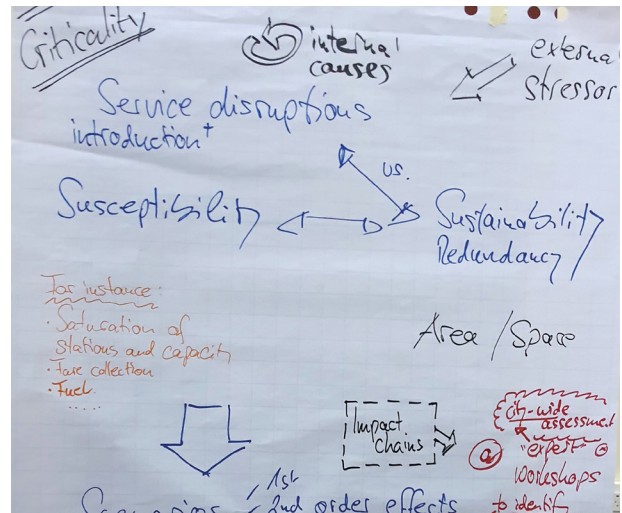 Criticality
internal
causes
external
stressor
Service disruptions
introduction+
vs.
Susceptibility
Sustainability/
Redundancy
For instance:
· Saturation of
stations and capacity
· Fare collection
· Fuel
.....
Area / Space
Impact
Chains
city-wide
assessment
a
"expert"
workshops
to identify
1st
2nd order effects